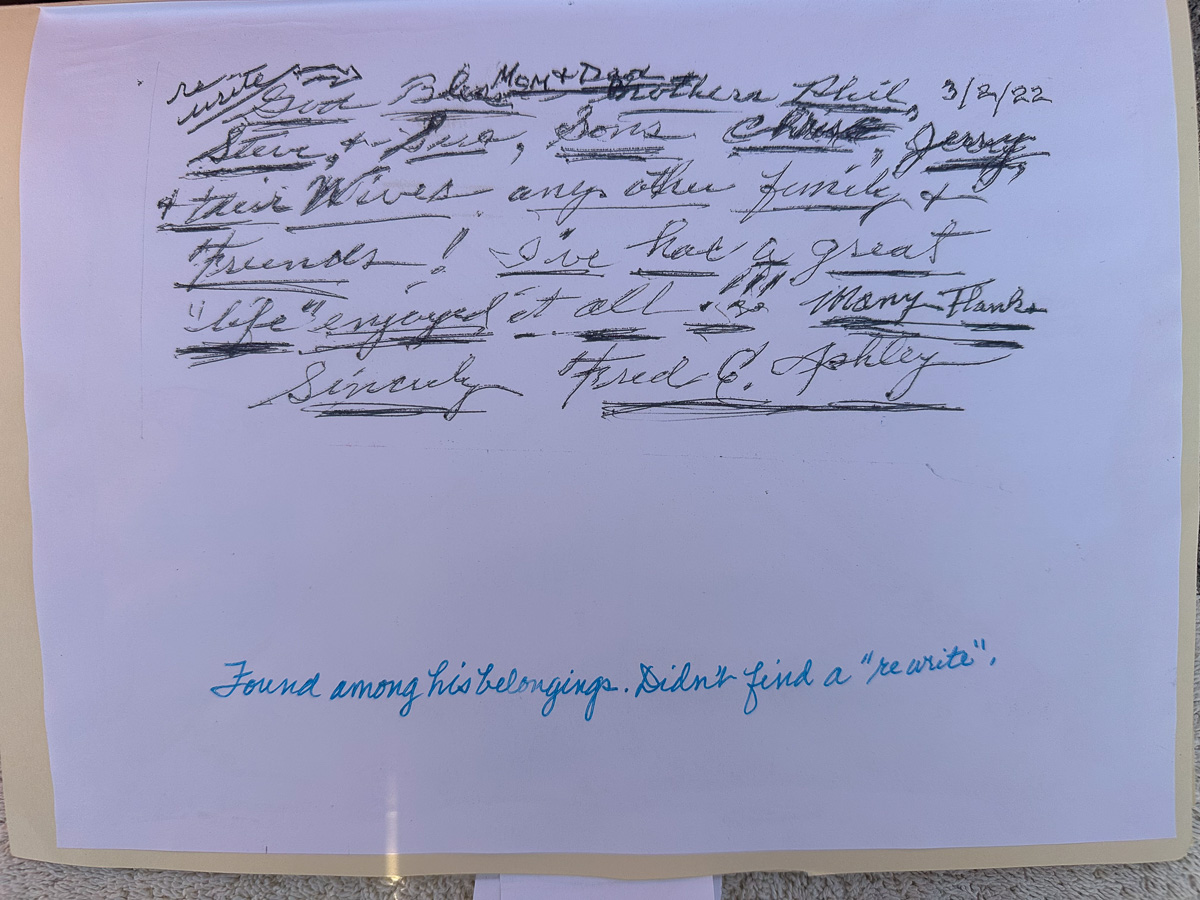 re write
God Bless Mom & Dad Brothers Phil, 3/2/22
Steve, & Sus, Sons Chris, Jerry,
& their Wives any other family &
Friends! I've had a great
"life" enjoyed it all !!! Many Thanks
Sincerely Fred E. Ashley
Found among his belongings. Didn't find a "rewrite".